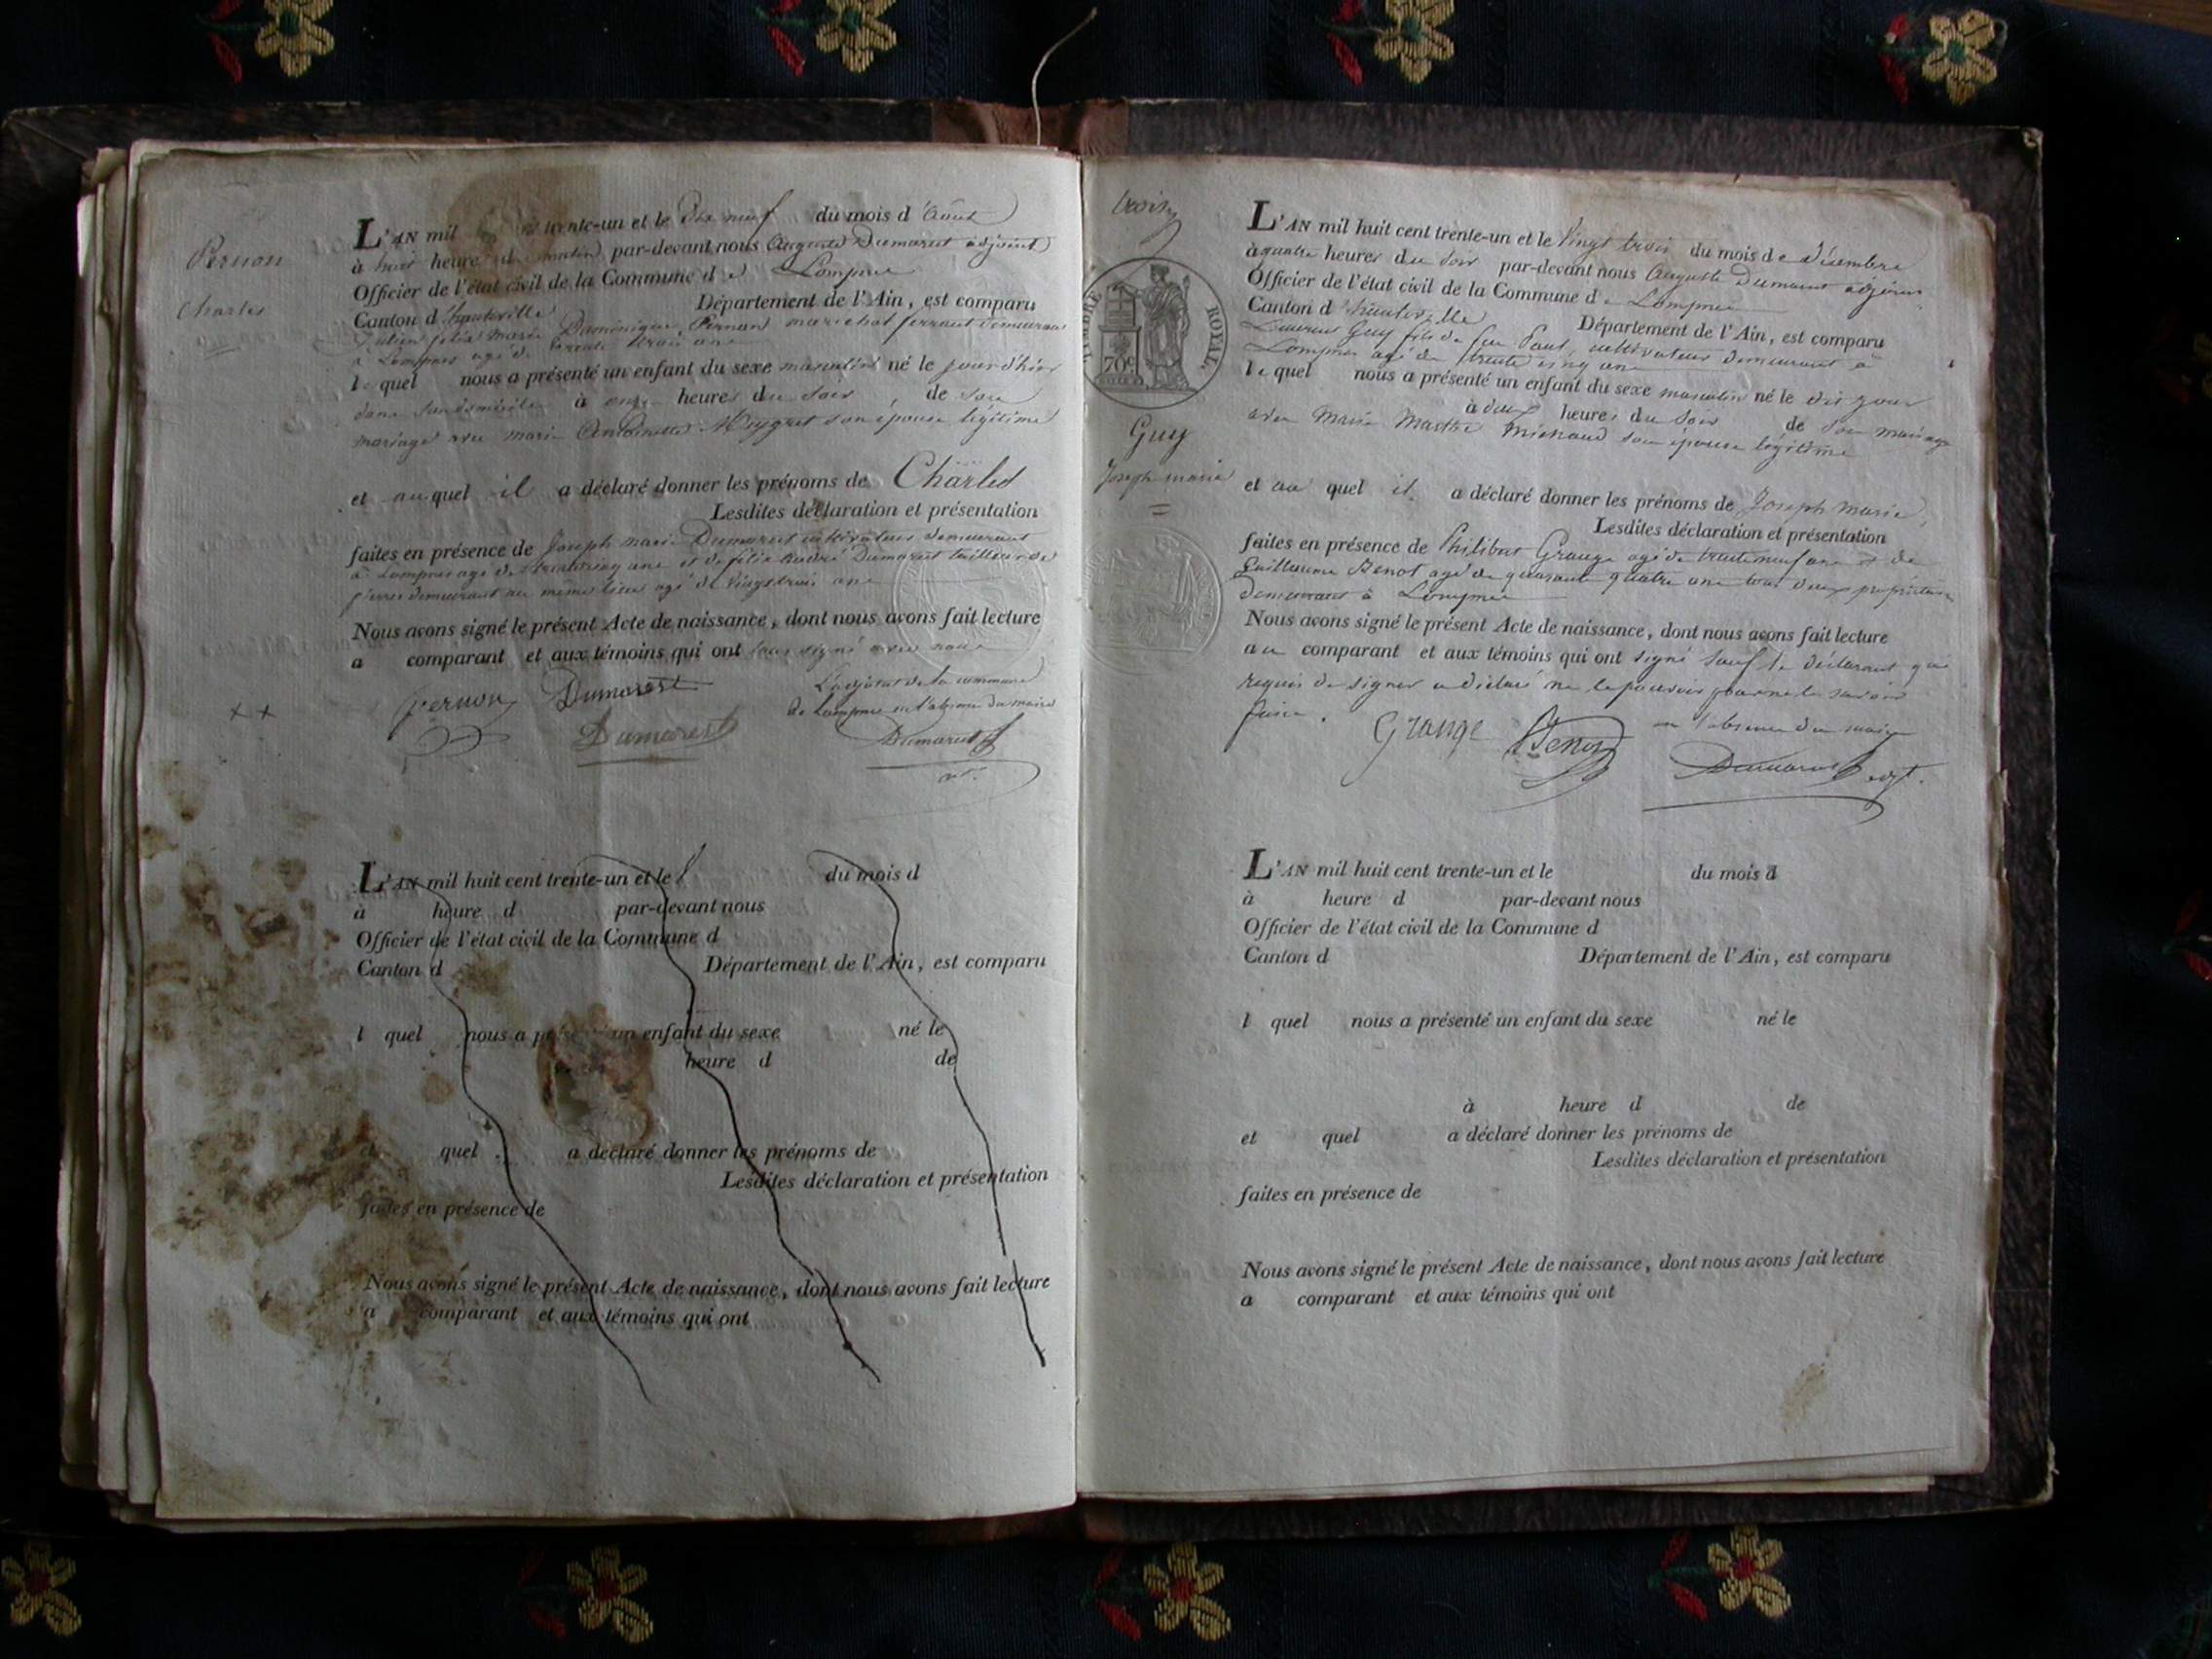 Pernon
Charles
L'AN mil trente-un et le Dix neuf du mois d'Août
à huit heures du matin par-devant nous Auguste Dumarest adjoint
Officier de l'état civil de la Commune de Lompnes
Canton d'hauteville Département de l'Ain, est comparu
julien félix marie Dominique Pernon maréchal ferrant demeurant
à Lompnes agé de trente trois ans
le quel nous a présenté un enfant du sexe masculin né le jour d'hier
dans son domicile à onze heures du soir de son
mariage avec marie Antoinette son épouse légitime
et au quel il a déclaré donner les prénoms de Charles
Lesdites déclaration et présentation
faites en présence de Joseph marie Dumarest cultivateur demeurant
à Lompnes agé de ans et de félix andré Dumarest tailleur de
pierres demeurant au même lieu agé de vingt trois ans
Nous avons signé le présent Acte de naissance, dont nous avons fait lecture
a comparant et aux témoins qui ont tous signé avec nous
L'adjoint de la commune
de Lompnes en l'absence du maire
pernon Dumarest
Dumarest Dumarest
L'AN mil huit cent trente-un et le du mois d
à heure d par-devant nous
Officier de l'état civil de la Commune d
Canton d Département de l'Ain, est comparu
l quel nous a présenté un enfant du sexe né le
heure d de
et quel a déclaré donner les prénoms de
Lesdites déclaration et présentation
faites en présence de
Nous avons signé le présent Acte de naissance, dont nous avons fait lecture
a comparant et aux témoins qui ont
trois
TIMBRE ROYAL
70c
Guy
Joseph marie
L'AN mil huit cent trente-un et le Vingt trois du mois de décembre
à quatre heures du soir par-devant nous Auguste Dumarest adjoint
Officier de l'état civil de la Commune de Lompnes
Canton d'hauteville Département de l'Ain, est comparu
Laurent Guy fils de feu Paul, cultivateur demeurant à
Lompnes agé de trente cinq ans
le quel nous a présenté un enfant du sexe masculin né le dit jour
à deux heures du soir de son mariage
avec Marie Marthe Michaud son épouse légitime
et au quel il a déclaré donner les prénoms de Joseph marie
Lesdites déclaration et présentation
faites en présence de Philibert Grange agé de trente neuf ans et de
Guillaume Benot agé de quarante quatre ans tous deux propriétaires
demeurant à Lompnes
Nous avons signé le présent Acte de naissance, dont nous avons fait lecture
au comparant et aux témoins qui ont signé sauf le déclarant qui
requis de signer a déclaré ne le pouvoir pour ne le savoir
faire.
Grange Benot en l'absence du maire
Dumarest adjt.
L'AN mil huit cent trente-un et le du mois d
à heure d par-devant nous
Officier de l'état civil de la Commune d
Canton d Département de l'Ain, est comparu
l quel nous a présenté un enfant du sexe né le
à heure d de
et quel a déclaré donner les prénoms de
Lesdites déclaration et présentation
faites en présence de
Nous avons signé le présent Acte de naissance, dont nous avons fait lecture
a comparant et aux témoins qui ont